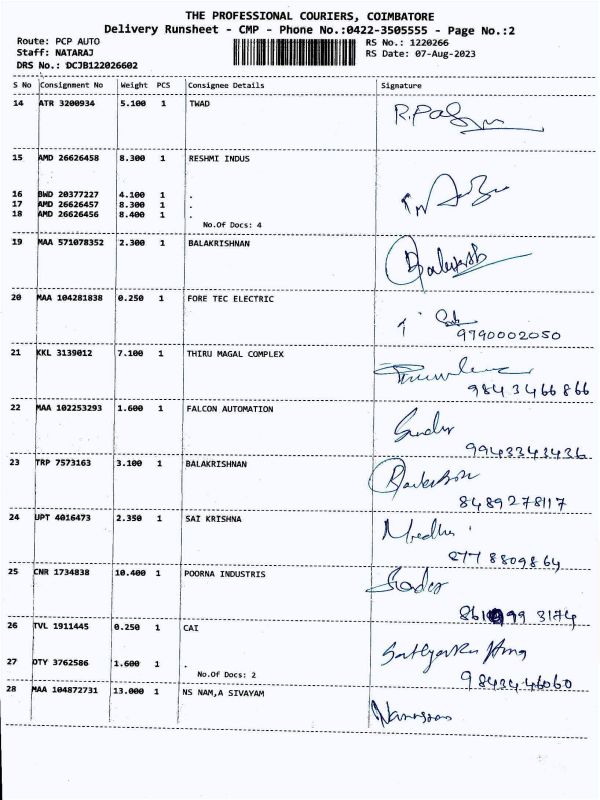 THE PROFESSIONAL COURIERS, COIMBATORE
Delivery Runsheet - CMP - Phone No.:0422-3505555 - Page No.:2
Route: PCP AUTO RS No.: 1220266
Staff: NATARAJ RS Date: 07-Aug-2023
DRS No.: DCJB122026602
S No Consignment No Weight PCS Consignee Details Signature
14 ATR 3200934 5.100 1 TWAD
15 AMD 26626458 8.300 1 RESHMI INDUS
16 BWD 20377227 4.100 1 .
17 AMD 26626457 8.300 1 .
18 AMD 26626456 8.400 1 .
No.Of Docs: 4
19 MAA 571078352 2.300 1 BALAKRISHNAN
20 MAA 104281838 0.250 1 FORE TEC ELECTRIC
9790002050
21 KKL 3139012 7.100 1 THIRU MAGAL COMPLEX
9843466866
22 MAA 102253293 1.600 1 FALCON AUTOMATION
9943343436
23 TRP 7573163 3.100 1 BALAKRISHNAN
8489278117
24 UPT 4016473 2.350 1 SAI KRISHNA
8778809864
25 CNR 1734838 10.400 1 POORNA INDUSTRIS
26 TVL 1911445 0.250 1 CAI
27 OTY 3762586 1.600 1 .
No.Of Docs: 2
28 MAA 104872731 13.000 1 NS NAM,A SIVAYAM